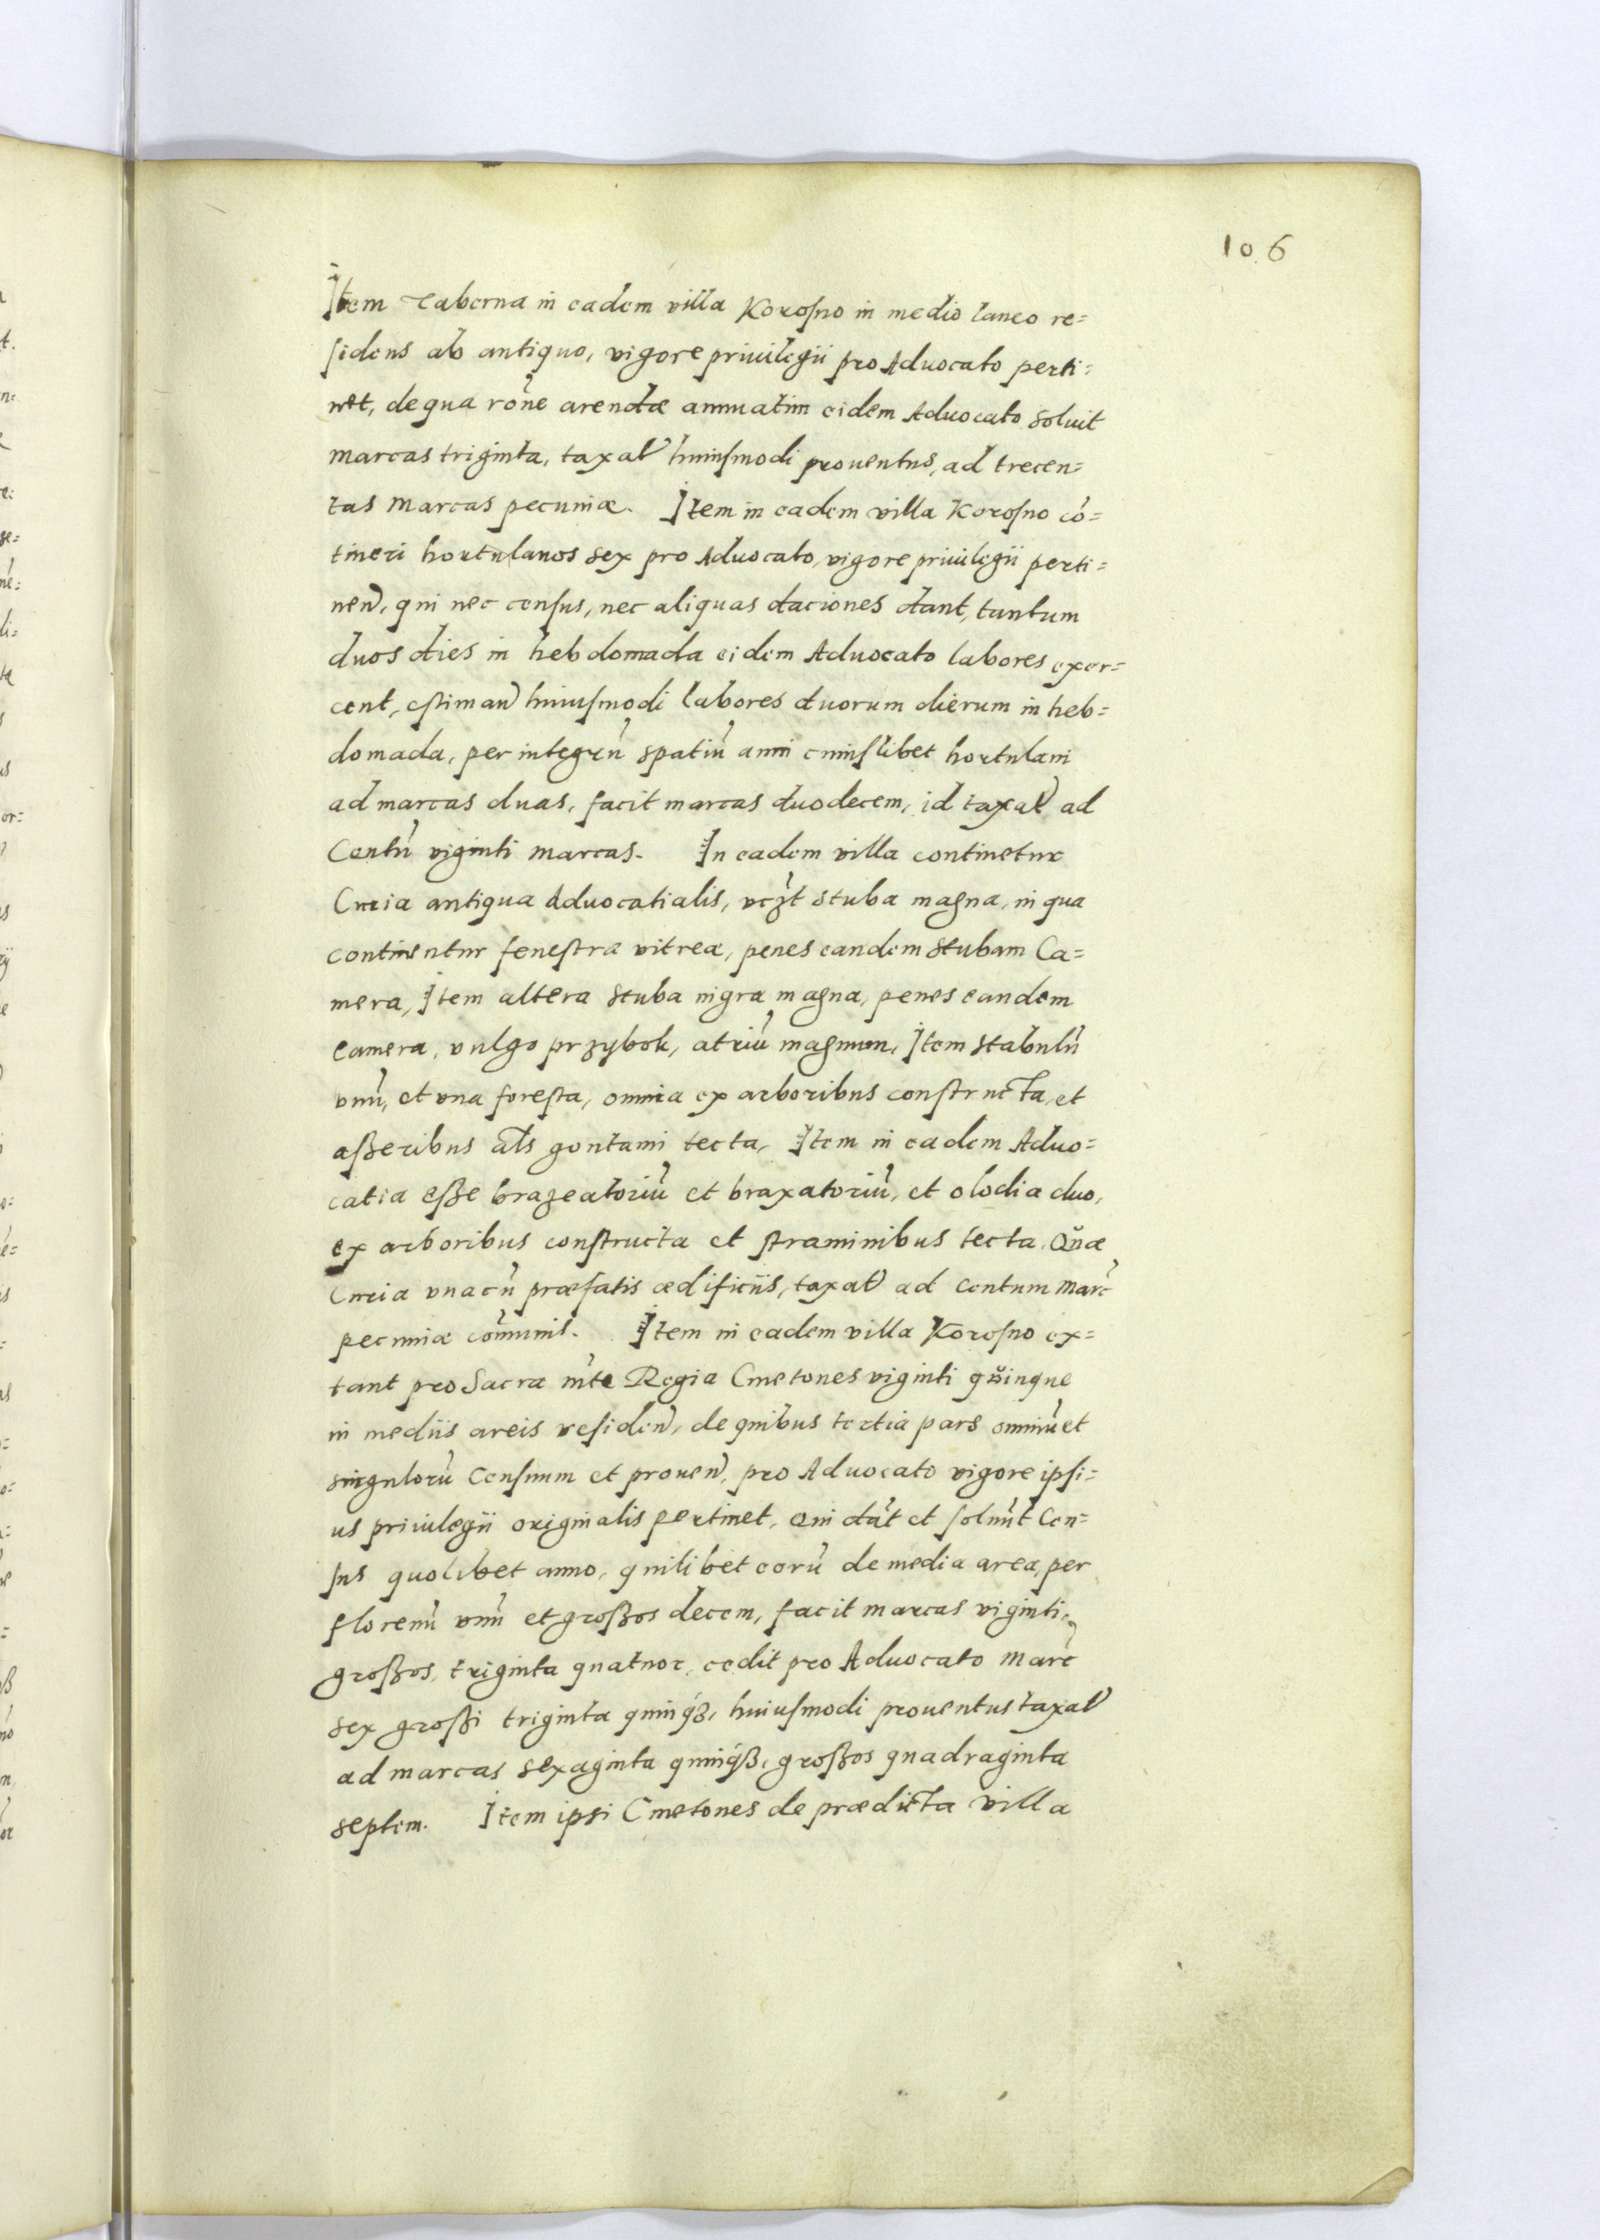 106
Item taberna in eadem villa Korosno in medio laneo re=
sidens ab antiquo, vigore privilegii pro Advocato perti=
net, de qua rõne arendæ annuatim eidem Advocato soluit
marcas triginta, taxat huiusmodi prouentus, ad trecen=
tas marcas pecuniæ. Item in eadem villa Korosno cõ=
tineri hortulanos sex pro Advocato, vigore priuilegii perti=
nen, qui nec census, nec aliquas daciones dant, tantum
duos dies in hebdomada eidem Advocato labores exer=
cent, estiman huiusmodi labores duorum dierum in heb=
domada, per integrũ spatiũ anni cuiuslibet hortulani
ad marcas duas, facit marcas duodecem, id taxat ad
Centũ viginti marcas. In eadem villa continetur
Curia antiqua Advocatialis, vczt stuba magna, in qua
continentur fenestræ vitreæ, penes eandem stubam Ca=
mera, Item altera stuba nigra magna, penes eandem
Camera, vulgo przybok, atriũ magnum, Item stabulũ
vnũ, et vna foresta, omnia ex arboribus constructa, et
aßeribus als gontami tecta, Item in eadem Aduo=
catia eße brazeatoriũ et braxatoriũ, et olodia duo,
ex arboribus constructa et straminibus tecta. Quæ
Curia vnacũ præfatis ædificiis, taxat ad centum marc
pecuniæ cõmunis. Item in eadem villa Korosno ex=
tant pro Sacra mte Regia Cmetones viginti quinque
in mediis areis residen, de quibus tertia pars omniũ et
singulorũ Censuum et prouen, pro Advocato vigore ipsi=
us priuilegii originalis pertinet, qui dãt et soluũt Cen=
sus quolibet anno, quilibet eorũ de media area, per
florenũ vnũ et großos decem, facit marcas viginti,
großos, triginta quatuor, cedit pro Advocato marc
sex großi triginta quinqß, huiusmodi prouentus taxat
ad marcas sexaginta quinqß, großos quadraginta
septem. Item ipsi Cmetones de prædicta villa